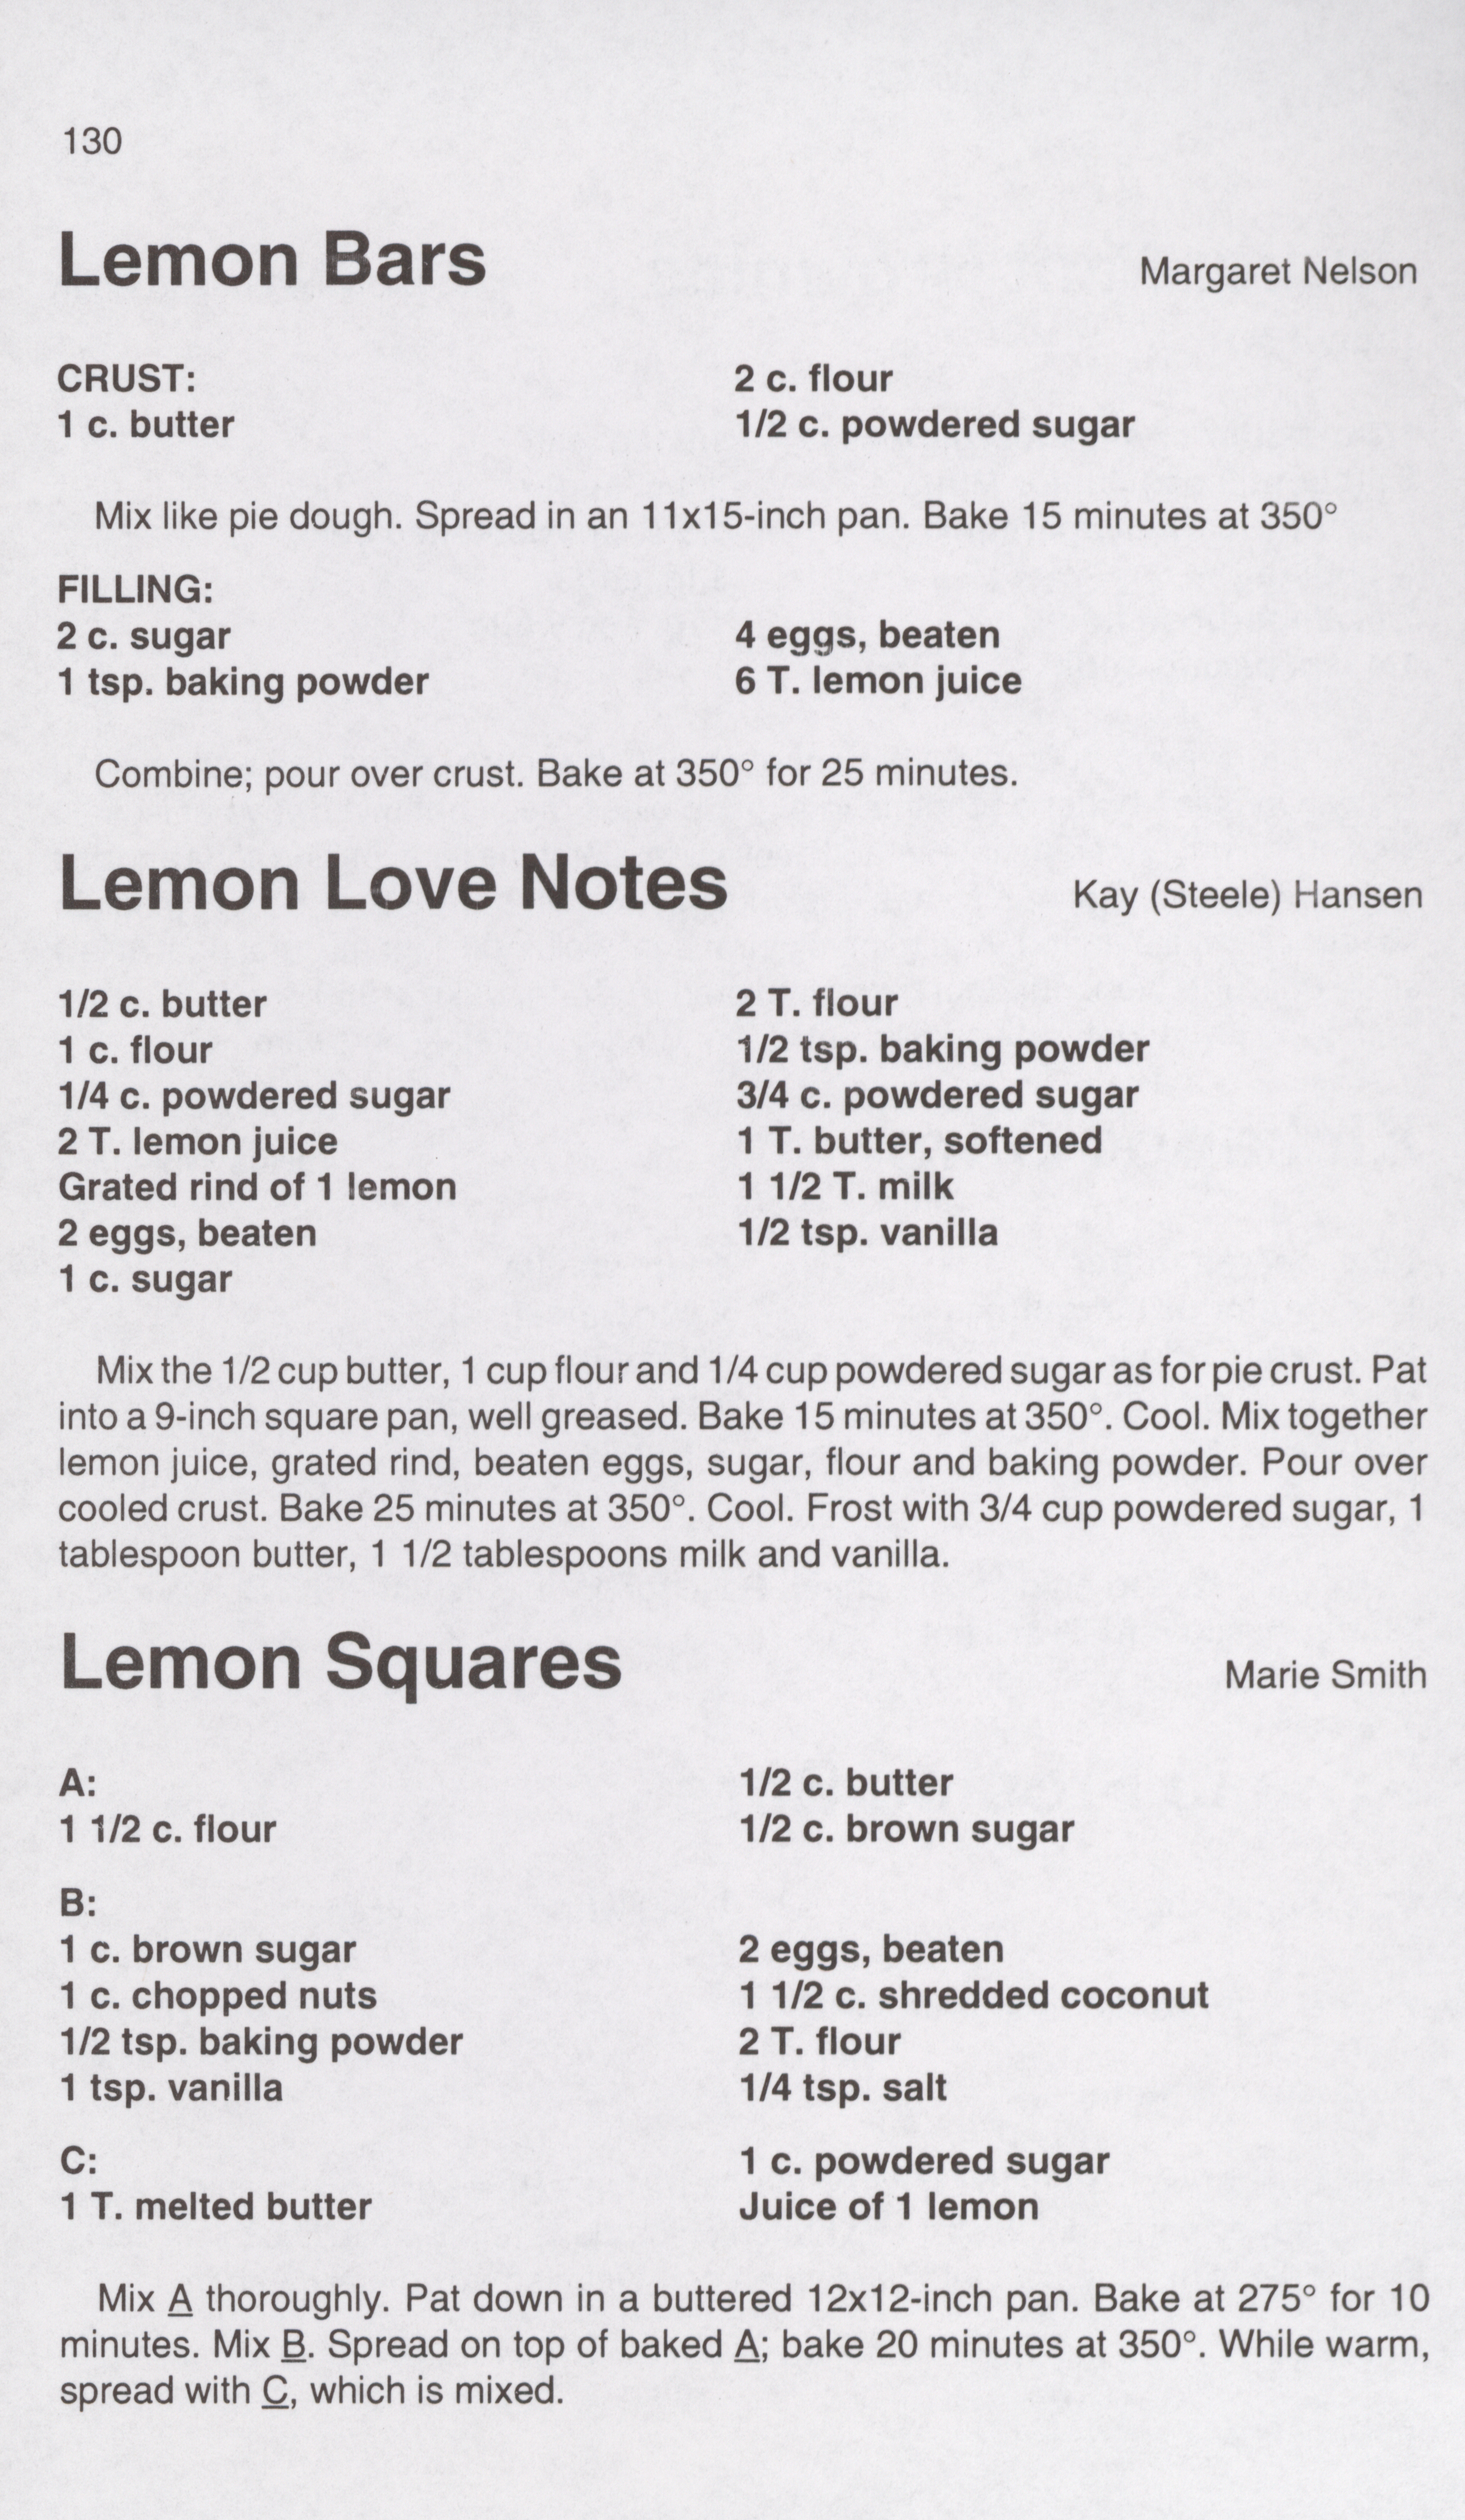 130
Lemon Bars
Margaret Nelson
CRUST:
1 c. butter
2 c. flour
1/2 c. powdered sugar
Mix like pie dough. Spread in an 11x15-inch pan. Bake 15 minutes at 350°
FILLING:
2 c. sugar
1 tsp. baking powder
4 eggs, beaten
6 T. lemon juice
Combine; pour over crust. Bake at 350° for 25 minutes.
Lemon Love Notes
Kay (Steele) Hansen
1/2 c. butter
1 c. flour
1/4 c. powdered sugar
2 T. lemon juice
Grated rind of 1 lemon
2 eggs, beaten
1 c. sugar
2 T. flour
1/2 tsp. baking powder
3/4 c. powdered sugar
1 T. butter, softened
1 1/2 T. milk
1/2 tsp. vanilla
Mix the 1/2 cup butter, 1 cup flour and 1/4 cup powdered sugar as for pie crust. Pat
into a 9-inch square pan, well greased. Bake 15 minutes at 350°. Cool. Mix together
lemon juice, grated rind, beaten eggs, sugar, flour and baking powder. Pour over
cooled crust. Bake 25 minutes at 350°. Cool. Frost with 3/4 cup powdered sugar, 1
tablespoon butter, 1 1/2 tablespoons milk and vanilla.
Lemon Squares
Marie Smith
A:
1 1/2 c. flour
1/2 c. butter
1/2 c. brown sugar
B:
1 c. brown sugar
1 c. chopped nuts
1/2 tsp. baking powder
1 tsp. vanilla
2 eggs, beaten
1 1/2 c. shredded coconut
2 T. flour
1/4 tsp. salt
C:
1 T. melted butter
1 c. powdered sugar
Juice of 1 lemon
Mix A thoroughly. Pat down in a buttered 12x12-inch pan. Bake at 275° for 10
minutes. Mix B. Spread on top of baked A; bake 20 minutes at 350°. While warm,
spread with C, which is mixed.